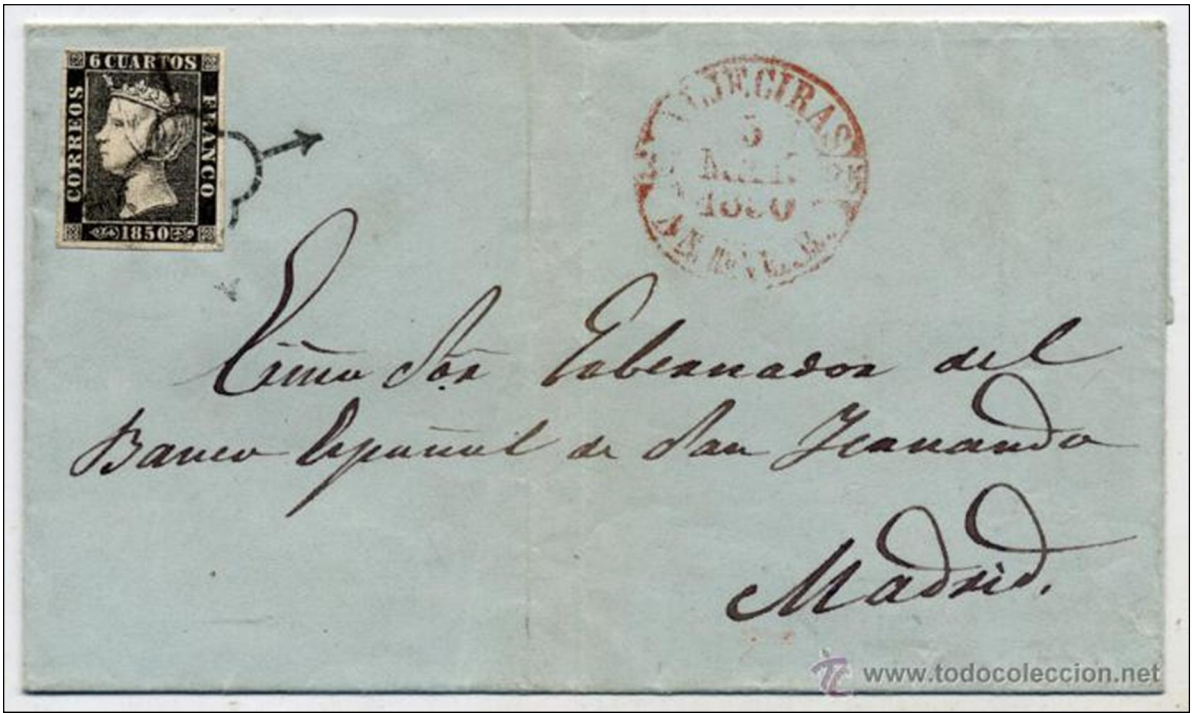 6 CUARTOS
CORREOS
FRANCO
1850
5
1850
Exmo Sor Gobernador del
Banco Español de San Fernando
Madrid.
www.todocoleccion.net